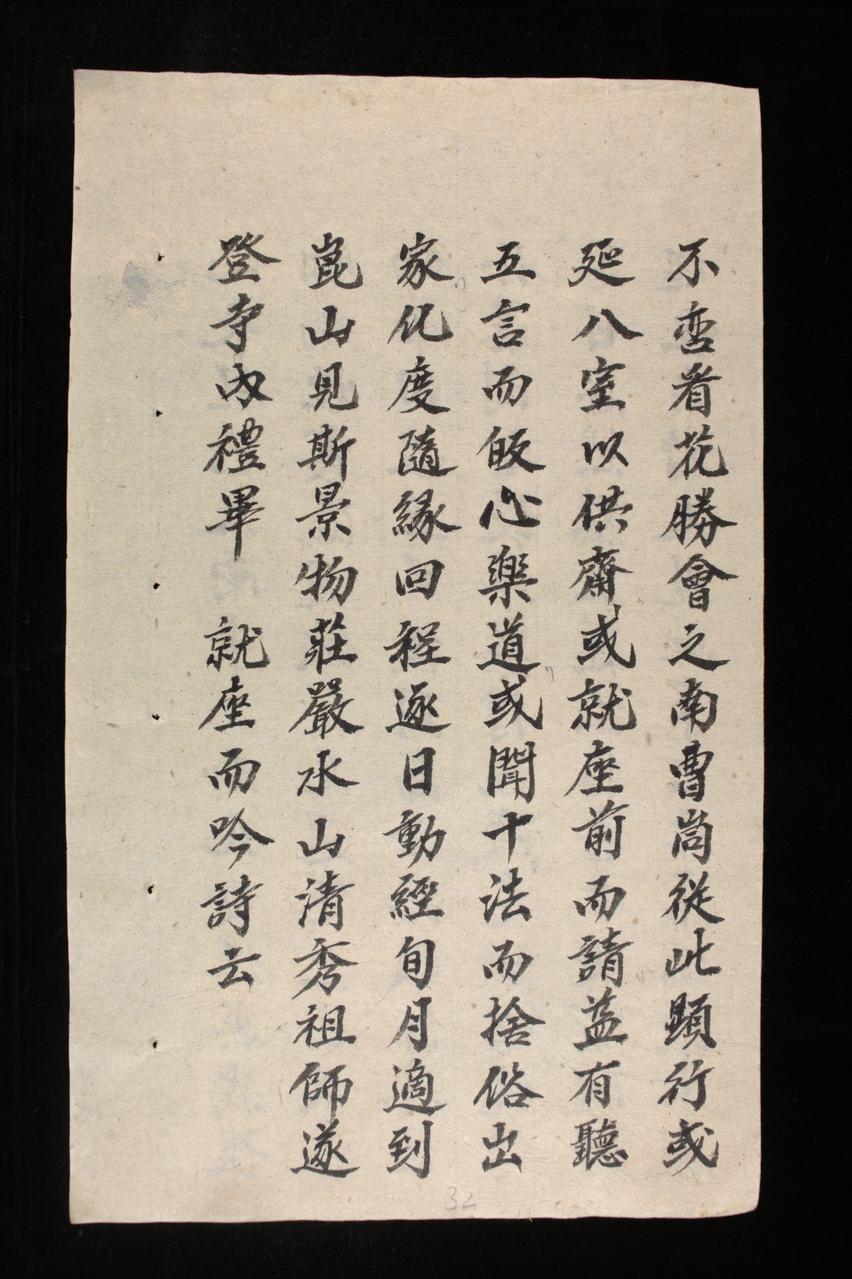 不峦看花勝會之南曹崗從此顕行或
延八室以供齋或就座前而請益有聽
五言而皈心楽道或聞十法而捨俗出
家化度隨緣回程逐日動經旬月適到
崑山見斯景物莊嚴水山清秀祖師遂
登寺內禮畢　就座而吟詩云
32